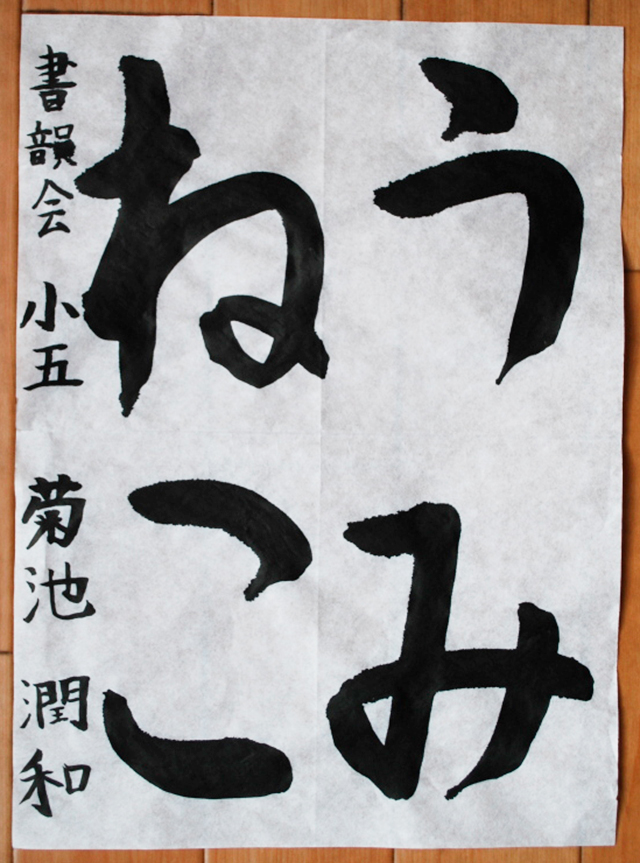 うみ
ねこ
書韻会 小五 菊池 潤和